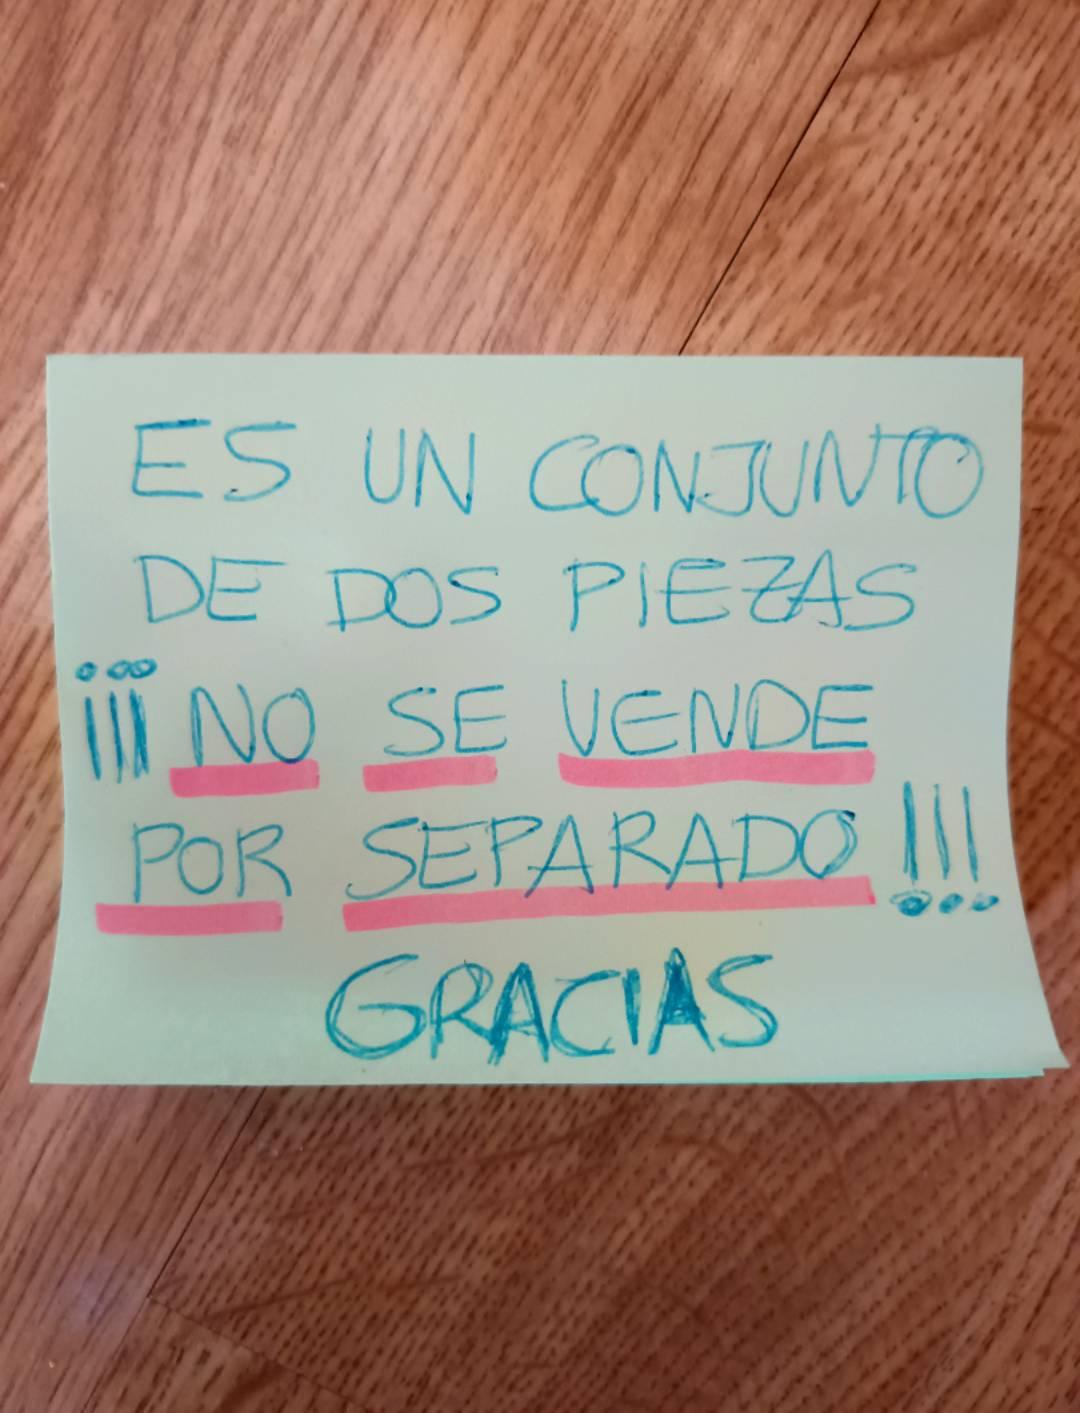 ES UN CONJUNTO
DE DOS PIEZAS
¡¡¡NO SE VENDE
POR SEPARADO!!!
GRACIAS